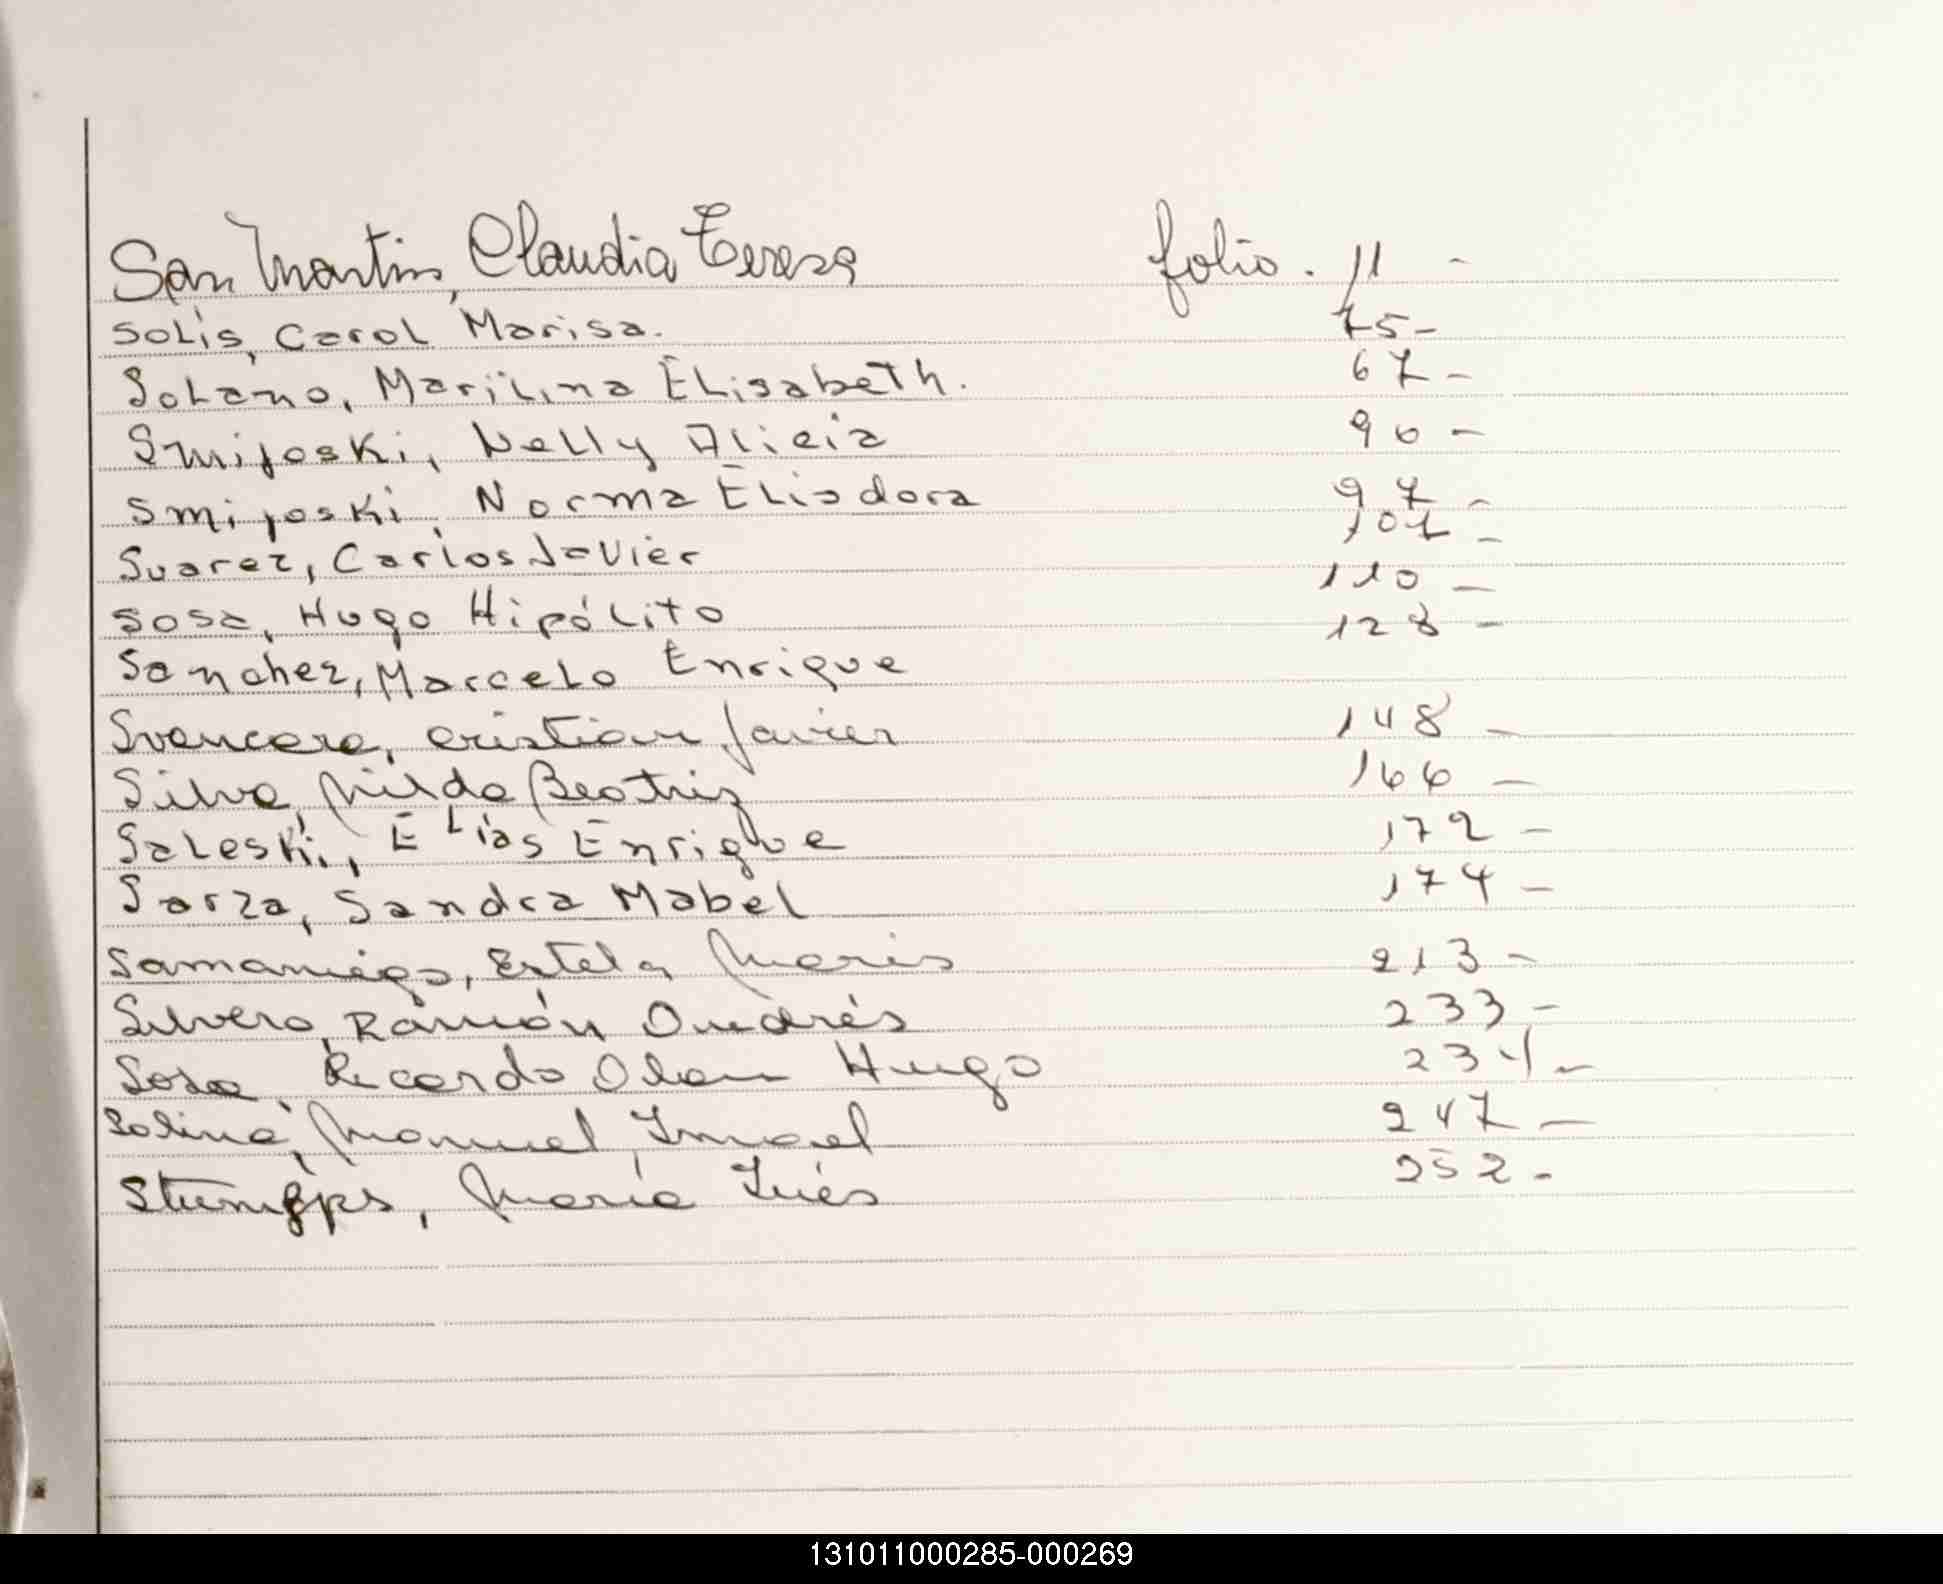 San Martin, Claudia Teresa folio. 11 -
Solis, Carol Marisa. 75 -
Solano, Marilina Elisabeth. 67 -
Smijoski, Nelly Alicia 90 -
Smijoski, Norma Eliodora 97 -
Suarez, Carlos Javier 107 -
Sosa, Hugo Hipólito 110 -
Sanchez, Marcelo Enrique 128 -
Svencara, Cristian Javier 148 -
Silva, Nilda Beatriz 166 -
Saleski, Elias Enrique 172 -
Sarza, Sandra Mabel 174 -
Samaniego, Estela Maris 213 -
Silvero, Ramón Andrés 233 -
Sosa, Ricardo Alan Hugo 234 -
Solina, Manuel Ismael 247 -
María Inés 252 -
131011000285-000269